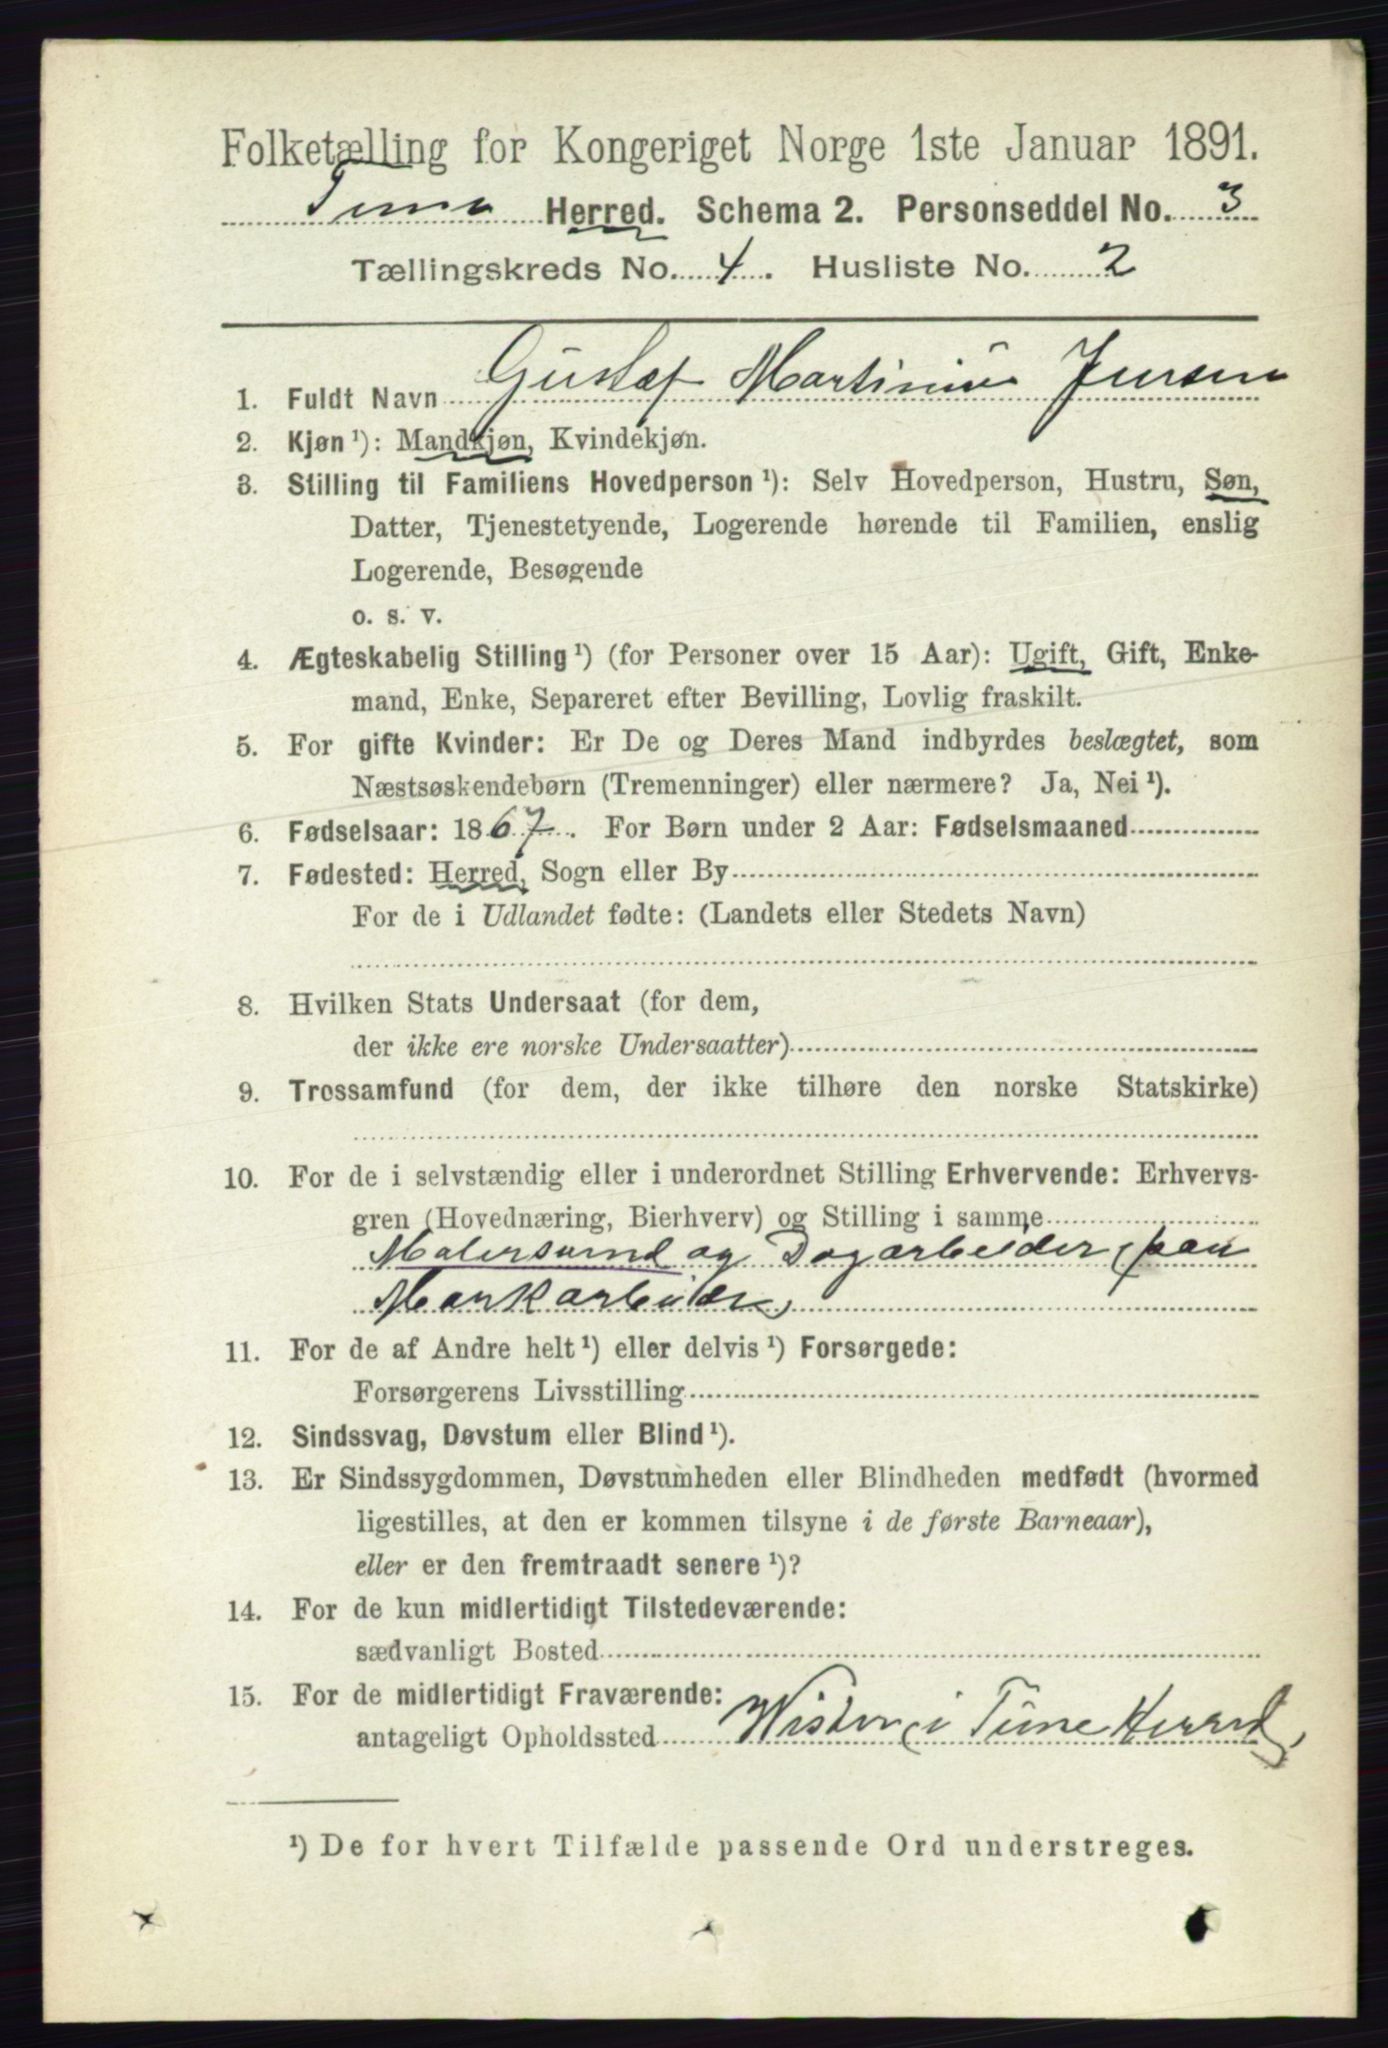 Folketælling for Kongeriget Norge 1ste Januar 1891.
Tune Herred. Schema 2. Personseddel No. 3
Tællingskreds No. 4. Husliste No. 2
1. Fuldt Navn Gustaf Martinius Jensen
2. Kjøn¹): Mandkjøn, Kvindekjøn.
3. Stilling til Familiens Hovedperson¹): Selv Hovedperson, Hustru, Søn,
Datter, Tjenestetyende, Logerende hørende til Familien, enslig
Logerende, Besøgende
o. s. v.
4. Ægteskabelig Stilling¹) (for Personer over 15 Aar): Ugift, Gift, Enke-
mand, Enke, Separeret efter Bevilling, Lovlig fraskilt.
5. For gifte Kvinder: Er De og Deres Mand indbyrdes beslægtet, som
Næstsøskendebørn (Tremenninger) eller nærmere? Ja, Nei¹).
6. Fødselsaar: 1867. For Børn under 2 Aar: Fødselsmaaned
7. Fødested: Herred, Sogn eller By
For de i Udlandet fødte: (Landets eller Stedets Navn)
8. Hvilken Stats Undersaat (for dem,
der ikke ere norske Undersaatter)
9. Trossamfund (for dem, der ikke tilhøre den norske Statskirke)
10. For de i selvstændig eller i underordnet Stilling Erhvervende: Erhvervs-
gren (Hovednæring, Bierhverv) og Stilling i samme
Malersvend og Dagarbeider (paa
Markarbeide)
11. For de af Andre helt¹) eller delvis¹) Forsørgede:
Forsørgerens Livsstilling
12. Sindssvag, Døvstum eller Blind¹).
13. Er Sindssygdommen, Døvstumheden eller Blindheden medfødt (hvormed
ligestilles, at den er kommen tilsyne i de første Barneaar),
eller er den fremtraadt senere¹)?
14. For de kun midlertidigt Tilstedeværende:
sædvanligt Bosted
15. For de midlertidigt Fraværende:
antageligt Opholdssted i Tune Herred
¹) De for hvert Tilfælde passende Ord understreges.